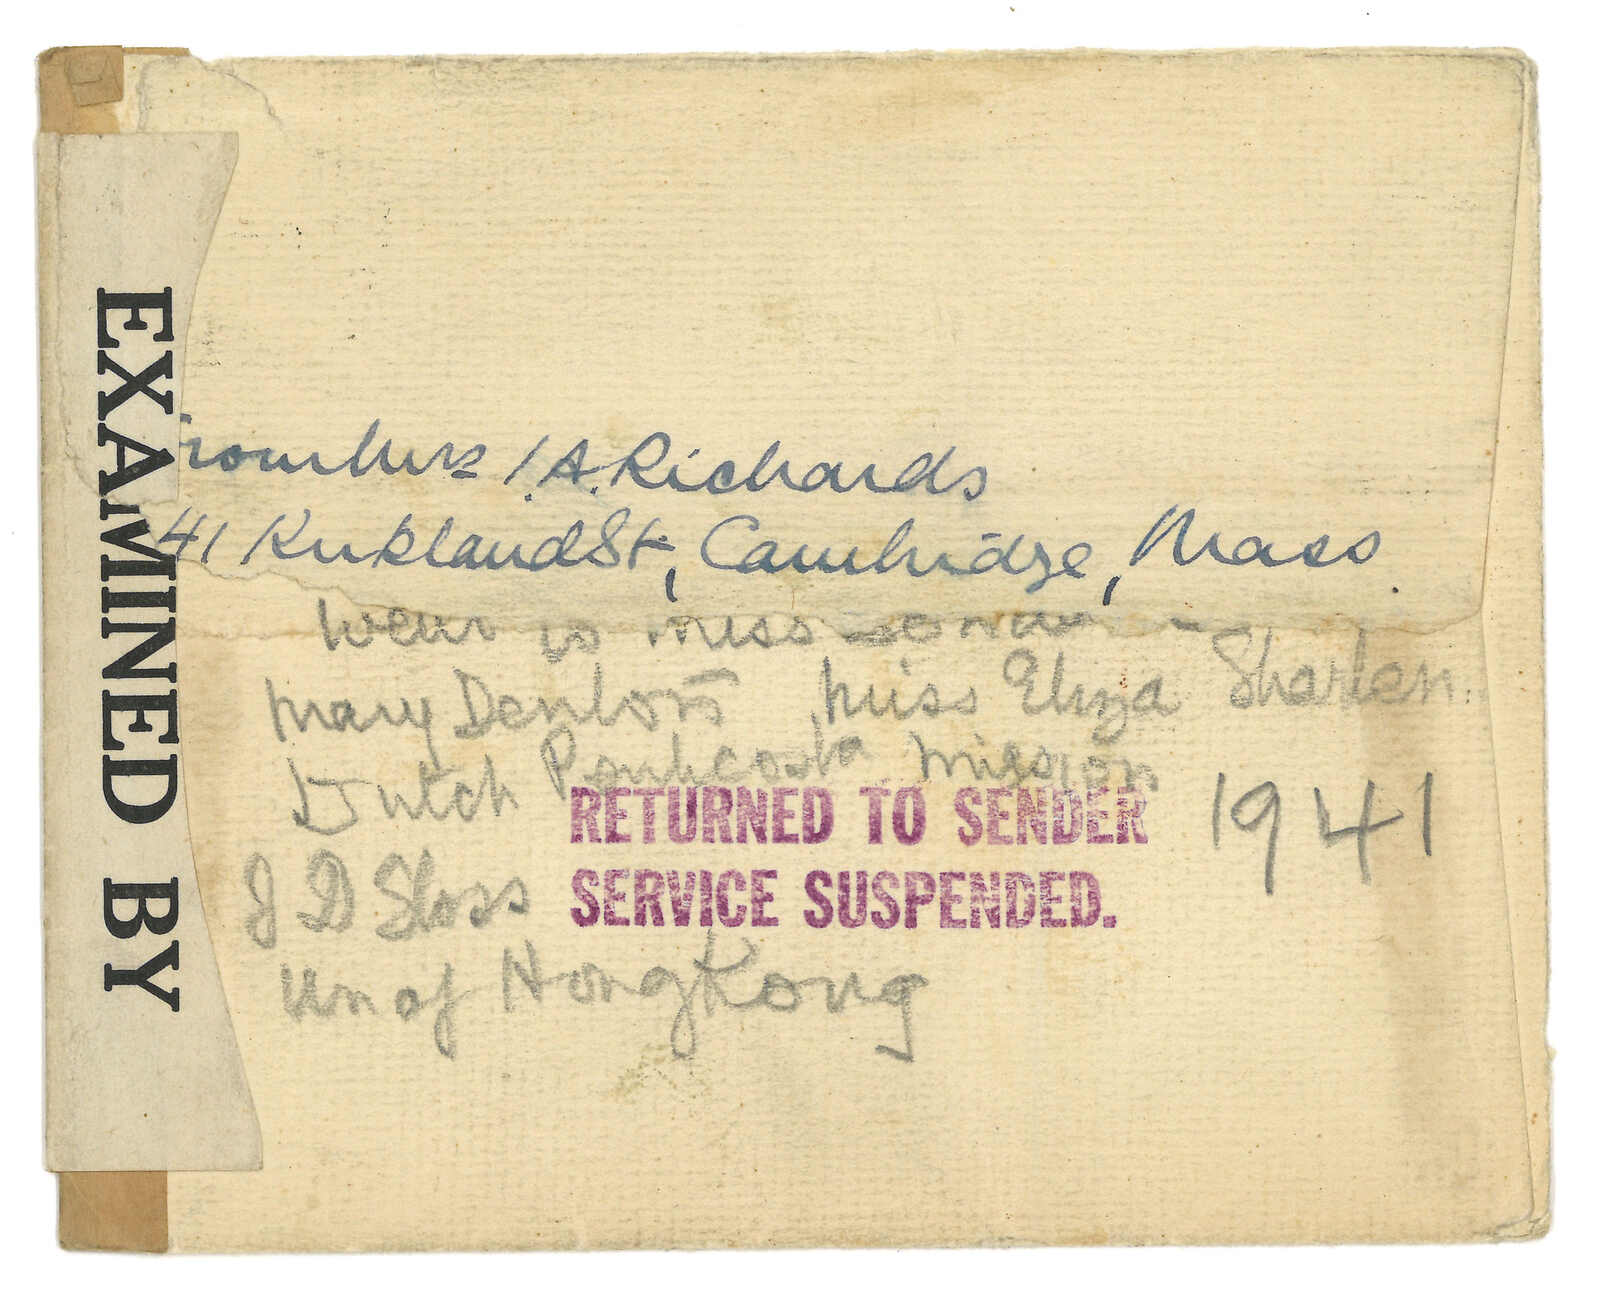 EXAMINED BY
From Mrs I. A. Richards
41 Kirkland St, Cambridge, Mass.
to Miss
Mary Miss Eliza
Dutch Pentcosta Mission
RETURNED TO SENDER
SERVICE SUSPENDED.
1941
J D Sloss
Un of Hong Kong